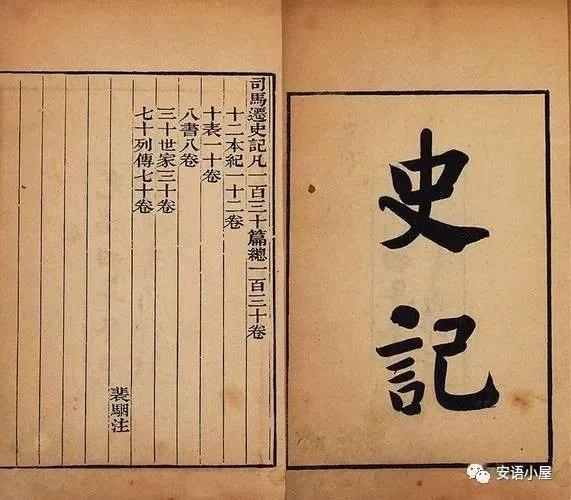 史記
司馬遷史記凡一百三十篇總一百三十卷
十二本紀一十二卷
十表一十卷
八書八卷
三十世家三十卷
七十列傳七十卷
裴駰注
安语小屋